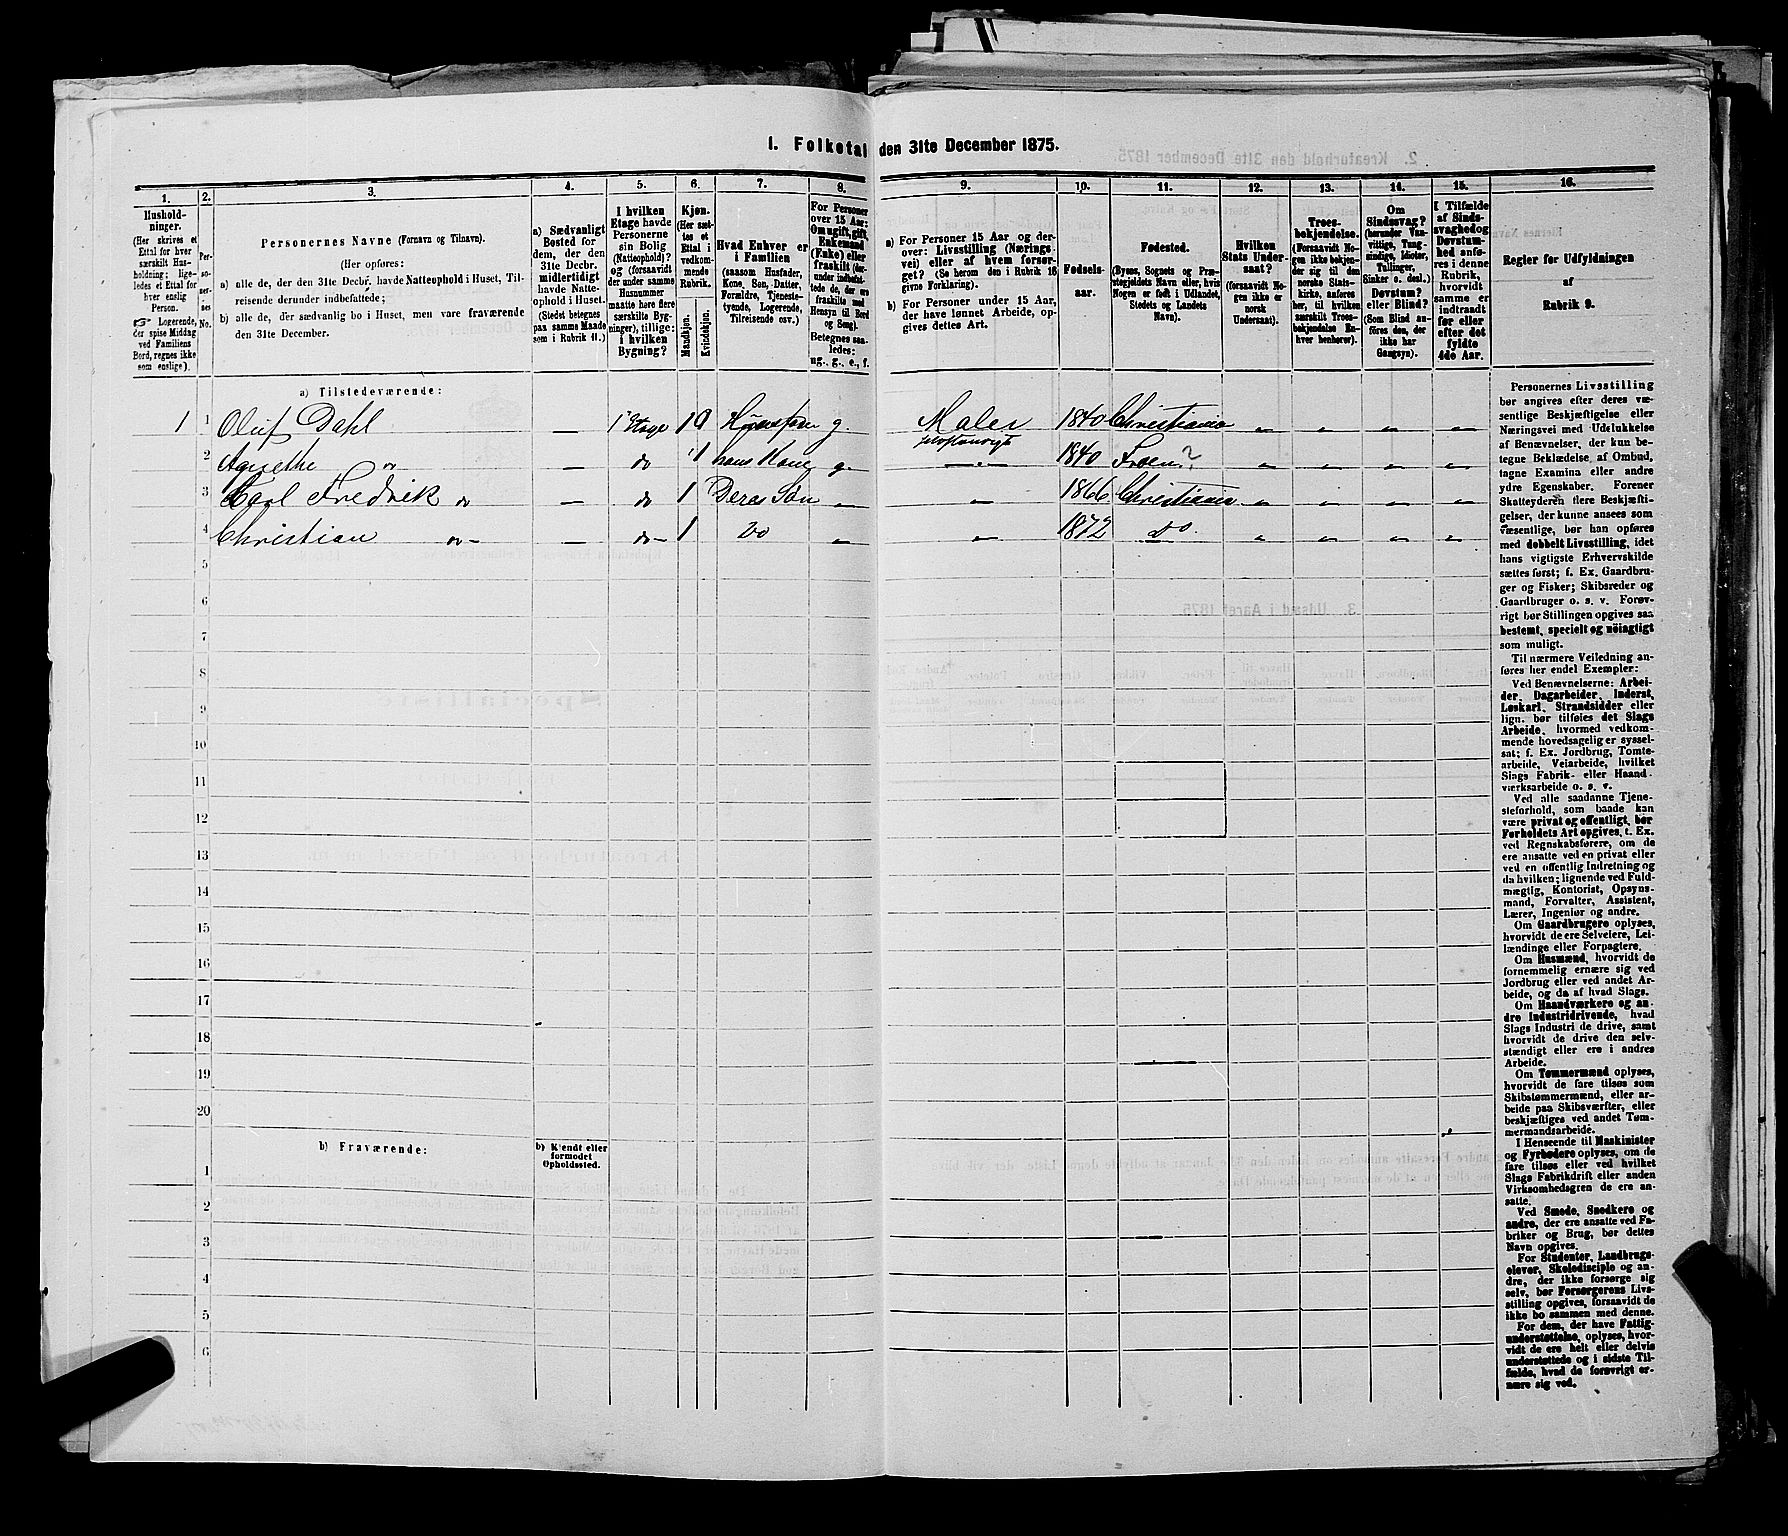 1. Folketal den 31te December 1875.
1. 2. 3. 4. 5. 6. 7. 8. 9. 10. 11. 12. 13. 14. 15. 16.
Hushold-
ninger.
(Her skrives et
Ettal for hver
særskilt Hus-
holdning; lige-
ledes et Ettal for
hver enslig
Person.
☞ Logerende,
der spise Middag
ved Familiens
Bord, regnes ikke
som enslige).
Per-
so-
ner-
nes
No.
Personernes Navne (Fornavn og Tilnavn).
(Her opføres:
a) alle de, der den 31te Decbr. havde Natteophold i Huset, Til-
reisende derunder indbefattede;
b) alle de, der sædvanlig bo i Huset, men vare fraværende
den 31te December.
a) Sædvanligt
Bosted for
dem, der den
31te Decbr.
midlertidigt
havde Natte-
ophold i Huset.
(Stedet betegnes
paa samme Maade
som i Rubrik 11.)
I hvilken
Etage havde
Personerne
sin Bolig
(Natteophold)?
og (forsaavidt
der under samme
Husnummer
maatte høre flere
særskilte Byg-
ninger), tillige:
i hvilken
Bygning?
Kjøn.
(Her sæt-
tes et
Ettal i
vedkom-
mende
Rubrik.
Mandkjøn.
Kvindekjøn.
Hvad Enhver er
i Familien
(saasom Husfader,
Kone, Søn, Datter,
Forældre, Tjeneste-
tyende, Logerende,
Tilreisende osv.)
For Personer
over 15 Aar:
Om ugift, gift,
Enkemand
(Enke) eller
fraskilt (der-
under indbefat-
tede de, der ere
fraskilte med
Hensyn til Bord
og Seng).
Betegnes saa-
ledes:
ug., g., e., f.
a) For Personer 15 Aar og der-
over: Livsstilling (Nærings-
vei) eller af hvem forsør-
get? (Se herom den i Rubrik 16
givne Forklaring).
b) For Personer under 15 Aar,
der have lønnet Arbeide, op-
gives dettes Art.
Fødsels-
aar.
Fødested.
(Byens, Sognets og Præ-
stegjeldets Navn eller, hvis
Nogen er født i Udlandet,
Stedets og Landets
Navn).
Hvilken
Stats Under-
saat?
(forsaavidt No-
gen ikke er
norsk
Undersaat).
Troes-
bekjendelse.
(Forsaavidt No-
gen ikke bekjen-
der sig til den
norske Stats-
kirke, anføres
her, til hvilken
særskilt Troes-
bekjendelse En-
hver henhører).
Om
Sindssvag?
(herunder Van-
vittige, Tung-
sindige, Idioter,
Tullinger,
Sinker o. desl.)
Døvstum?
eller Blind?
(Som Blind an-
føres den, der
ikke har
Gangsyn).
I Tilfælde
af Sinds-
svaghed og
Døvstum-
hed anfø-
res i denne
Rubrik,
hvorvidt
samme er
indtraadt
før eller
efter det
fyldte
4de Aar.
Regler for Udfyldningen
af
Rubrik 9.
a) Tilstedeværende:
1 1 Oluf Dahl — 1 Etage 1 g. Maler 1840 Christiania
2 Agnethe do — do 1 hans Kone g. 1840 Froen?
3 Carl Fredrik do — do 1 Deres Søn 1866 Christiania
4 Christian do — do 1 Do 1872 do.
5
6
7
8
9
10
11
12
13
14
15
16
17
18
19
20
b) Fraværende:
b) Kjendt eller
formodet
Opholdssted.
1
2
3
4
5
6
Personernes Livsstilling
bør angives efter deres væ-
sentlige Beskjæftigelse eller
Næringsvei med Udelukkelse
af Benævnelser, der kun be-
tegne Beklædelse, af Ombud,
tagne Examina eller andre
ydre Egenskaber. Forener
Skatteyderen flere Beskjæfti-
gelser, der kunne ansees som
væsentlige, bør han opføres
med dobbelt Livsstilling, idet
hans vigtigste Erhvervskilde
sættes først; f. Ex. Gaardbru-
ger og Fisker; Skibsreder og
Gaardbruger o. s. v. Forøv-
rigt bør Stillingen opgives saa
bestemt, specielt og nöiagtigt
som muligt.
Til nærmere Veiledning an-
føres her endel Exempler:
Ved Benævnelserne: Arbei-
der, Dagarbeider, Inderst,
Løskarl, Strandsidder eller
lign. bør tilføies det Slags
Arbeide, hvormed vedkom-
mende hovedsagelig er syssel-
sat; f. Ex. Jordbrug, Tomte-
arbeide, Veiarbeide, hvilket
Slags Fabrik- eller Haand-
værksarbeide o. s. v.
Ved alle saadanne Tjene-
steforhold, som baade kan
være privat og offentligt, bør
Forholdets Art opgives, t. Ex.
ved Regnskabsførere, om de
ere ansatte ved en privat eller
ved en offentlig Indretning og
da hvilken; lignende ved Fuld-
mægtig, Kontorist, Opsyns-
mand, Forvalter, Assistent,
Lærer, Ingeniør og andre.
Om Gaardbrugere oplyses,
hvorvidt de ere Selveiere, Lei-
lændinge eller Forpagtere.
Om Husmænd, hvorvidt de
fornemmelig ernære sig ved
Jordbrug eller ved andet Ar-
beide, og da af hvad Slags.
Om Haandværkere og an-
dre Industridrivende, hvad
Slags Industri de drive, samt
hvorvidt de drive den selv-
stændigt eller ere i andres
Arbeide.
Om Tømmermænd oplyses,
hvorvidt de fare tilsøs som
Skibstømmermænd, eller ar-
beide paa Skibsværfter, eller
beskjæftiges ved andet Tøm-
mermandsarbeide.
I Henseende til Maskinister
og Fyrbødere oplyses, om de
fare tilsøs eller ved hvilket
Slags Fabrikdrift eller anden
Virksomhedsgren de ere an-
satte.
Ved Smede, Snedkere og
andre, der ere ansatte ved Fa-
briker og Brug, bør dettes
Navn opgives.
For Studenter, Landbrugs-
elever, Skoledisciple og an-
dre, der ikke forsørge sig
selv, bør Forsørgerens Livs-
stilling opgives, forsaavidt de
ikke bo sammen med denne.
For dem, der have Fattig-
understøttelse, oplyses, hvor-
vidt de ere helt eller delvis
understøttede og i sidste Til-
fælde, hvad de forøvrigt er-
nære sig ved.